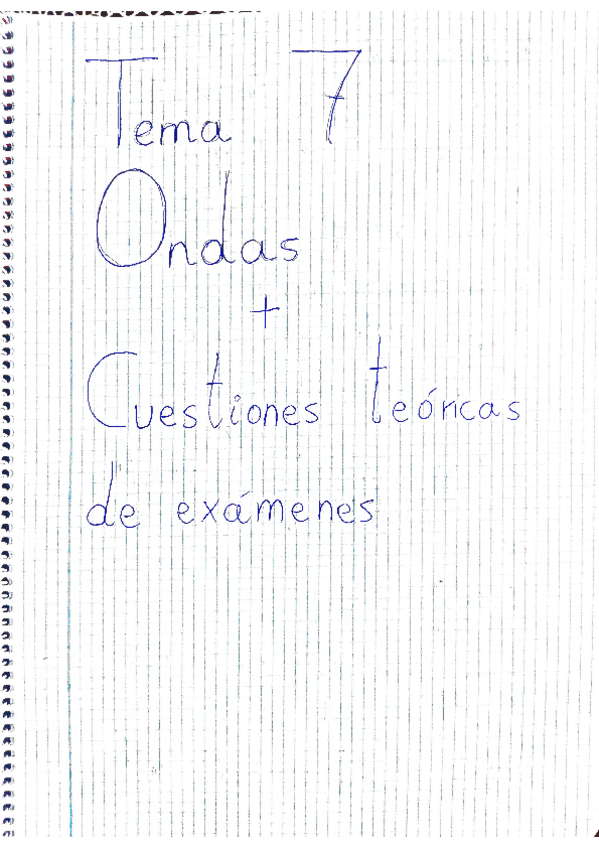 Tema 7
Ondas
+
Cuestiones teóricas
de exámenes